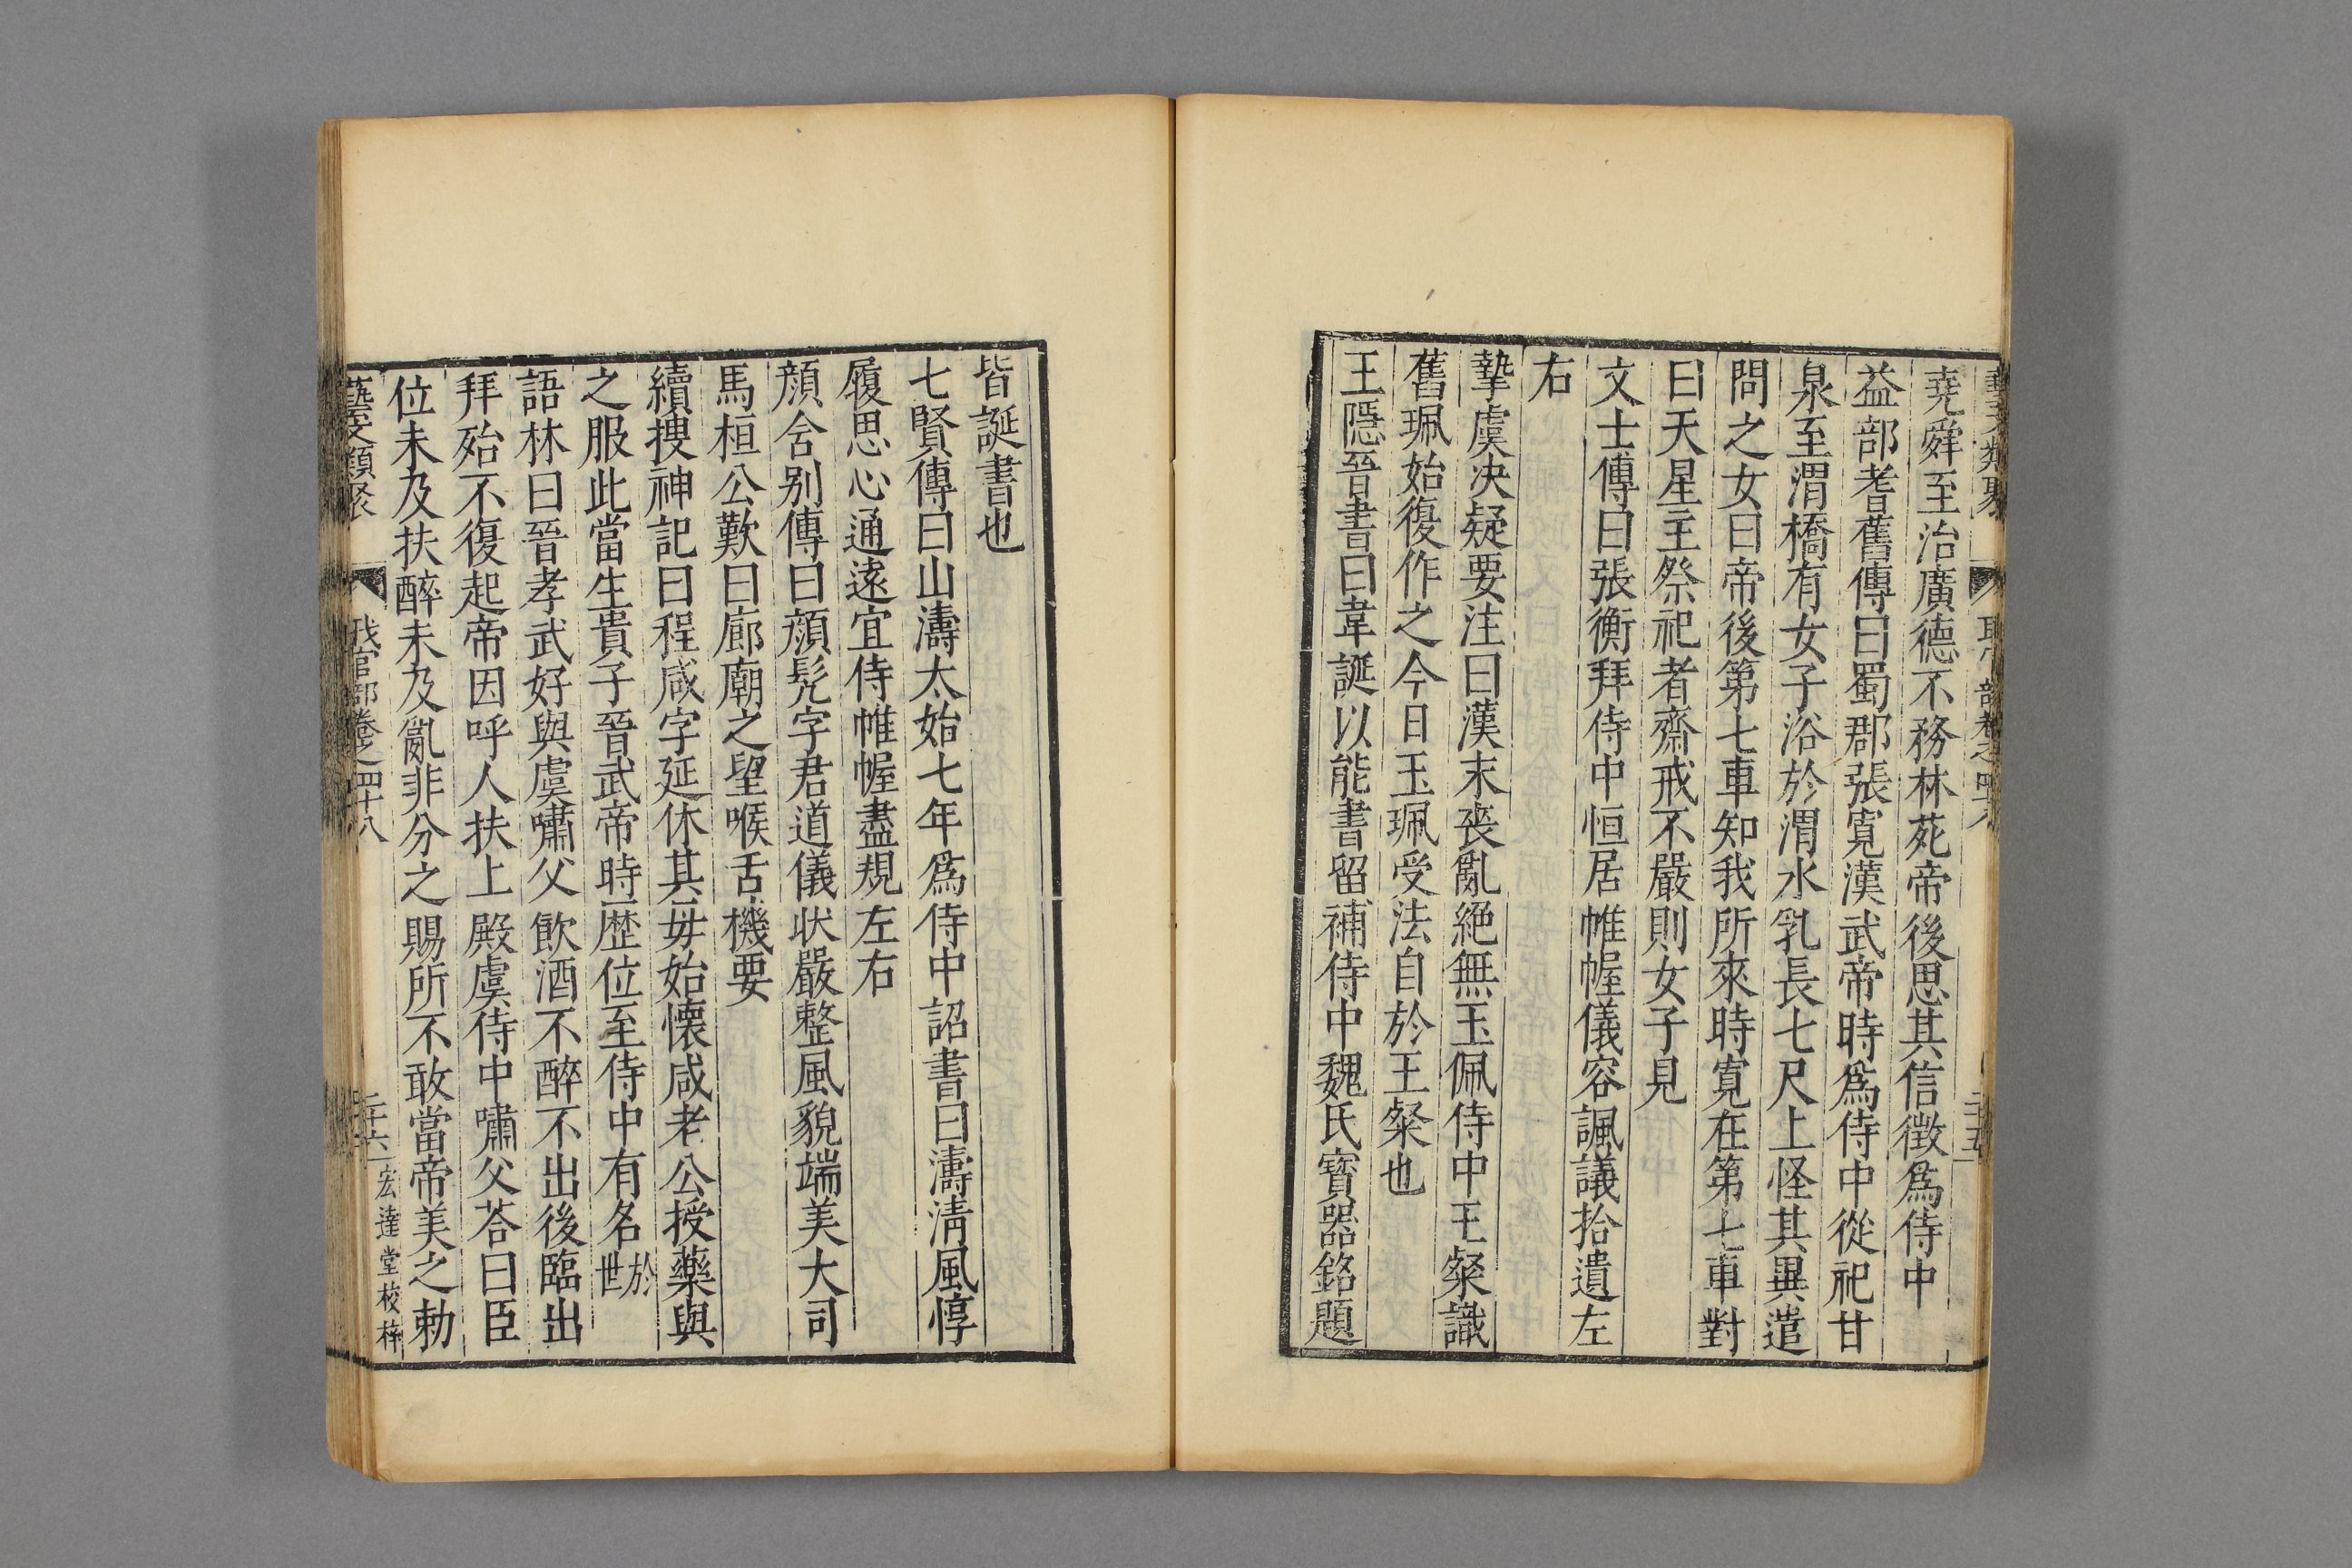 堯舜至治廣德不務林苑帝後思其信徵爲侍中
益部耆舊傳曰蜀郡張寬漢武帝時爲侍中從祀甘
泉至渭橋有女子浴於渭水乳長七尺上怪其異遣
問之女曰帝後第七車知我所來時寬在第七車對
曰天星主祭祀者齋戒不嚴則女子見
文士傳曰張衡拜侍中恒居帷幄儀容諷議拾遺左
右
摯虞决疑要注曰漢末喪亂絕無玉佩侍中王粲識
舊珮始復作之今日玉珮受法自於王粲也
王隱晉書曰韋誕以能書留補侍中魏氏寳器銘題
皆誕書也
七賢傳曰山濤太始七年爲侍中詔書曰濤淸風惇
履思心通遠宜侍帷幄盡規左右
顏含别傳曰顏髠字君道儀狀嚴整風貌端美大司
馬桓公歎曰廊廟之望喉舌機要
續搜神記曰程咸字延休其毋始懷咸老公授藥與
之服此當生貴子晉武帝時歷位至侍中有名於世
語林曰晉孝武好與虞嘯父飲酒不醉不出後臨出
拜殆不復起帝因呼人扶上殿虞侍中嘯父荅曰臣
位未及扶醉未及亂非分之賜所不敢當帝美之勅
藝文類聚 職官部卷之四十八 二十六 宏達堂校梓